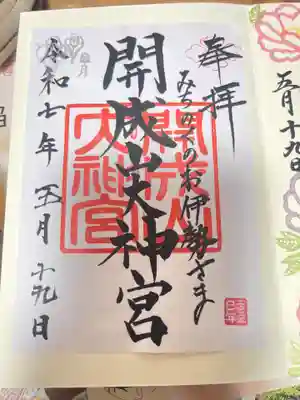 五月十九日
奉拝
みちのくのお伊勢さま
開成山大神宮
開成山
大神宮
皐月
令和七年 五月 十九日